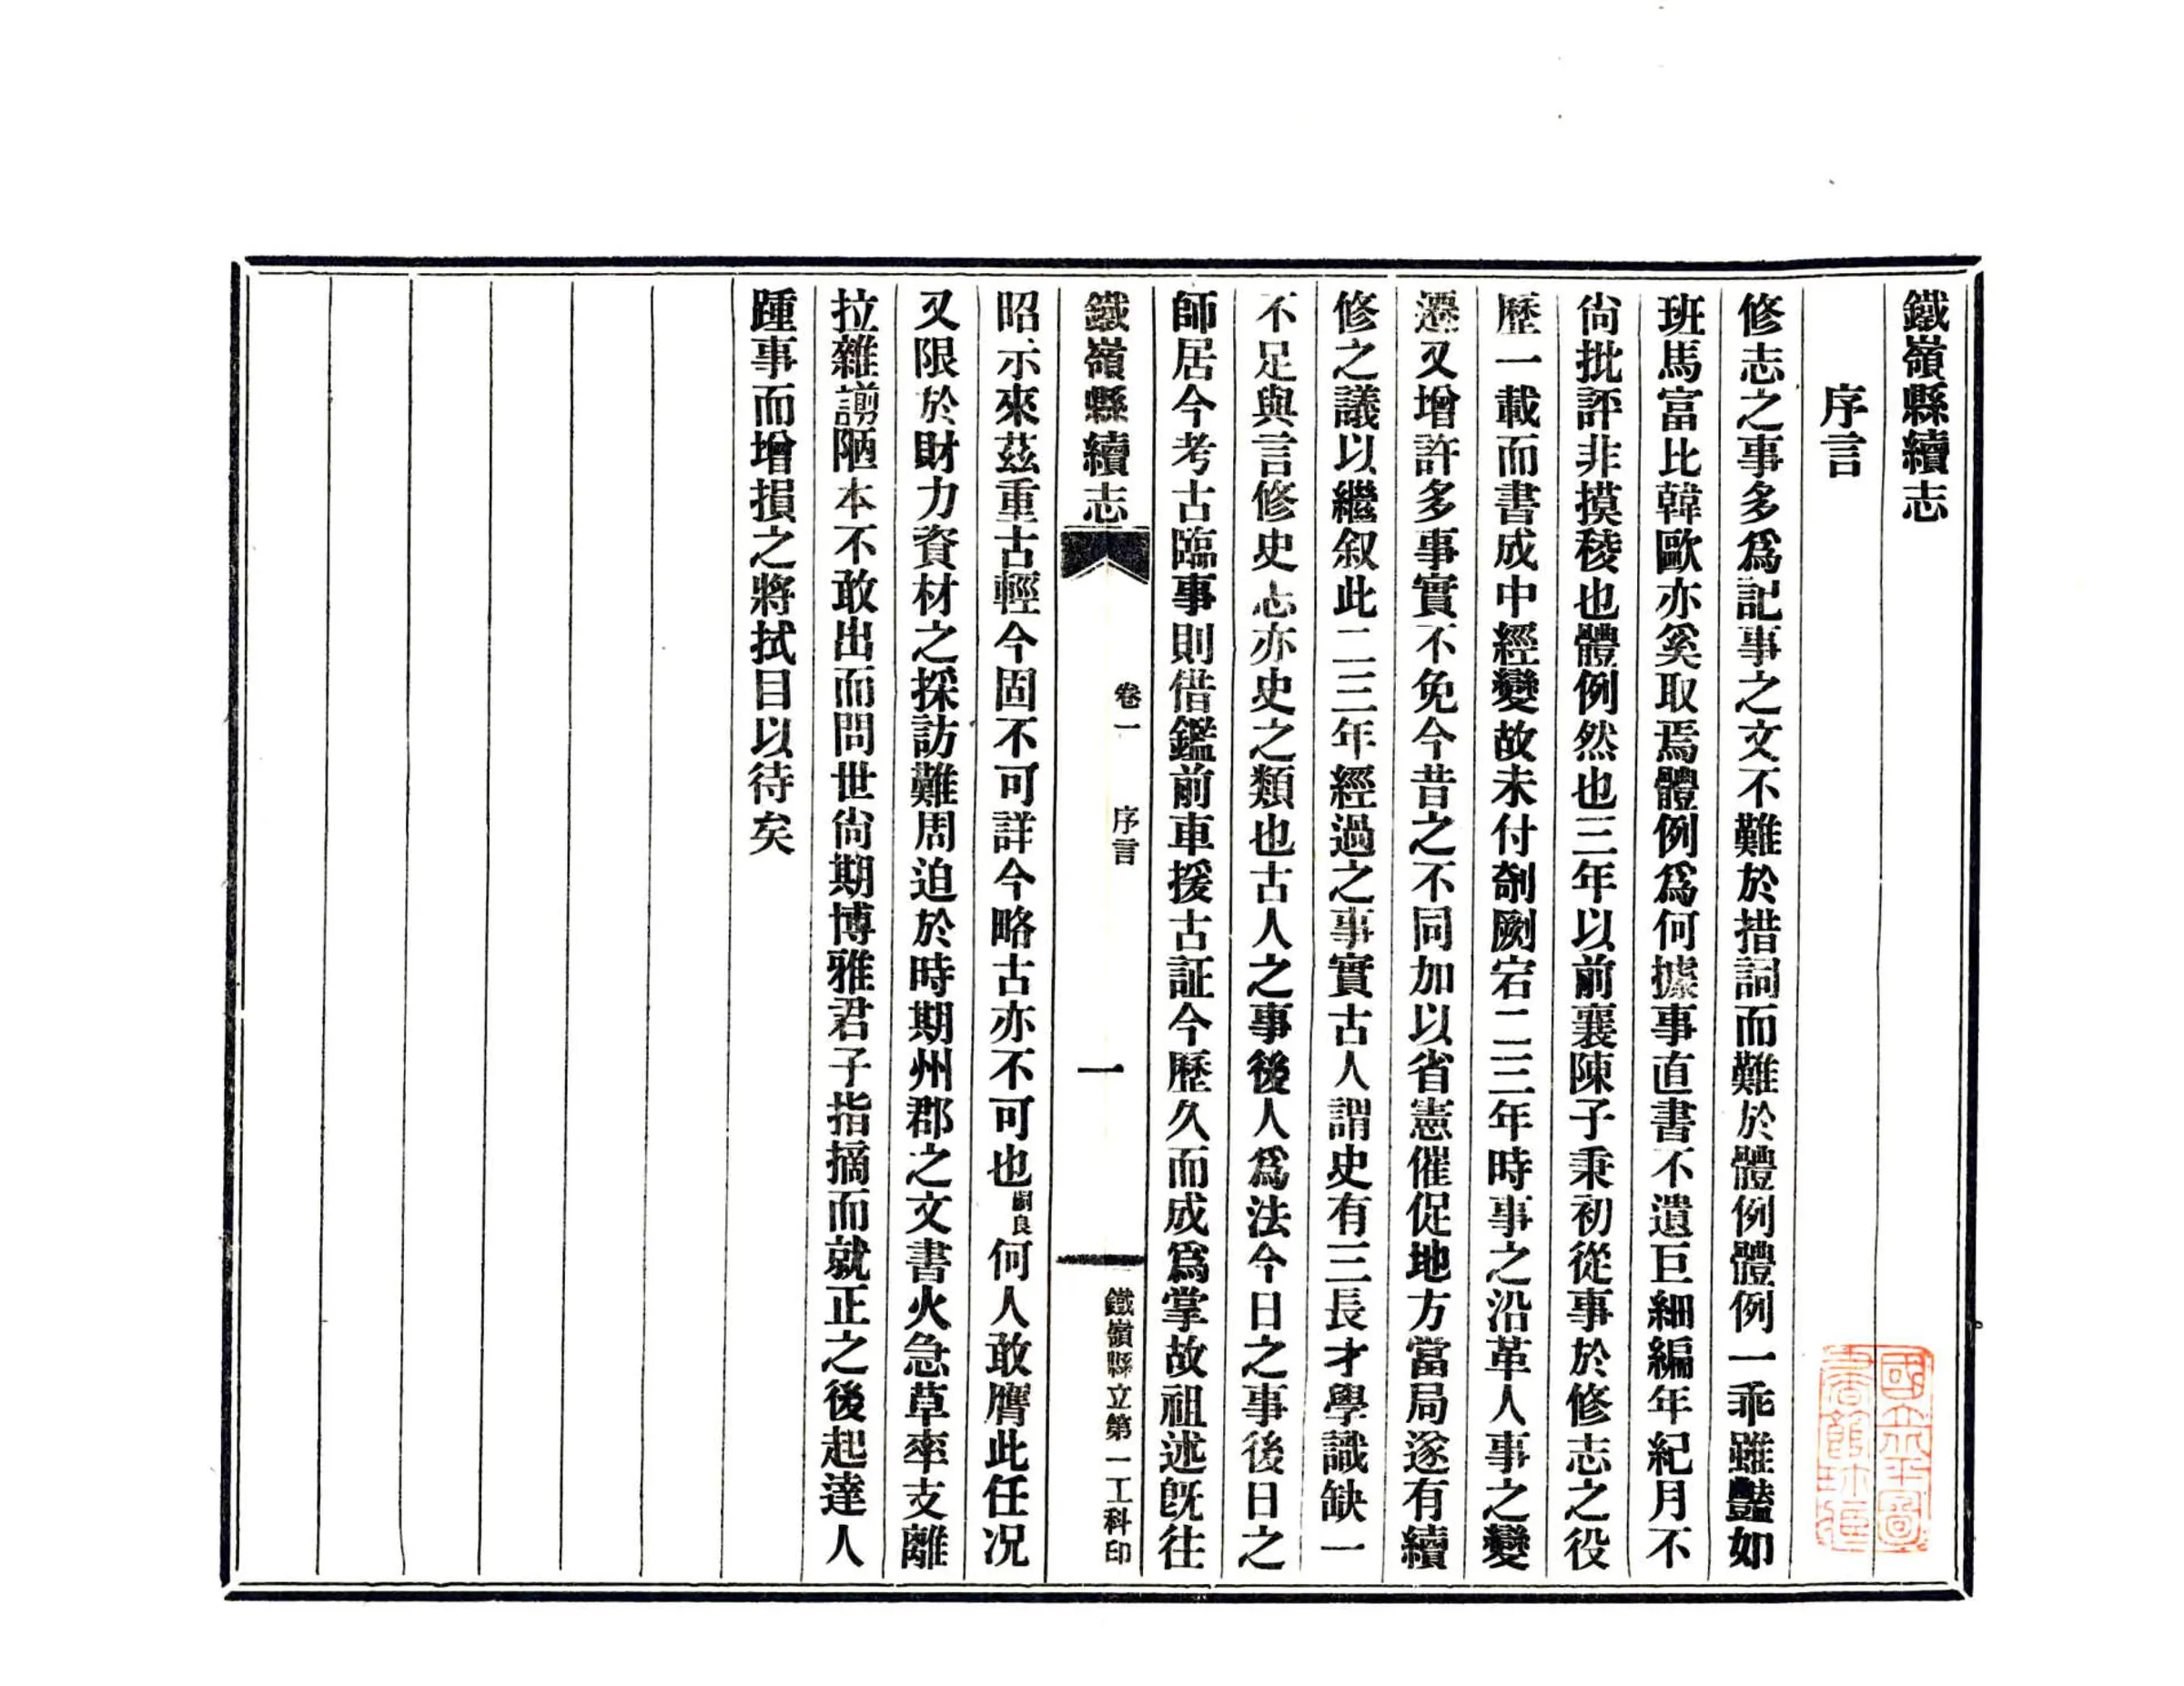 鐵嶺縣續志
序言
修志之事多爲記事之文不難於措詞而難於體例體例一乖雖豔如
班馬富比韓歐亦奚取焉體例爲何據事直書不遺巨細編年紀月不
尙批評非摸稜也體例然也三年以前襄陳子秉初從事於修志之役
歷一載而書成中經變故未付剞劂宕二三年時事之沿革人事之變
遷又增許多事實不免今昔之不同加以省憲催促地方當局遂有續
修之議以繼叙此二三年經過之事實古人謂史有三長才學識缺一
不足與言修史志亦史之類也古人之事後人爲法今日之事後日之
師居今考古臨事則借鑑前車援古証今歷久而成爲掌故祖述旣往
鐵嶺縣續志
卷一
序言
一
鐵嶺縣立第一工科印
昭示來茲重古輕今固不可詳今略古亦不可也嗣良何人敢膺此任况
又限於財力資材之採訪難周迫於時期州郡之文書火急草率支離
拉雜謭陋本不敢出而問世尙期博雅君子指摘而就正之後起達人
踵事而增損之將拭目以待矣
國立北平圖
書館珍藏